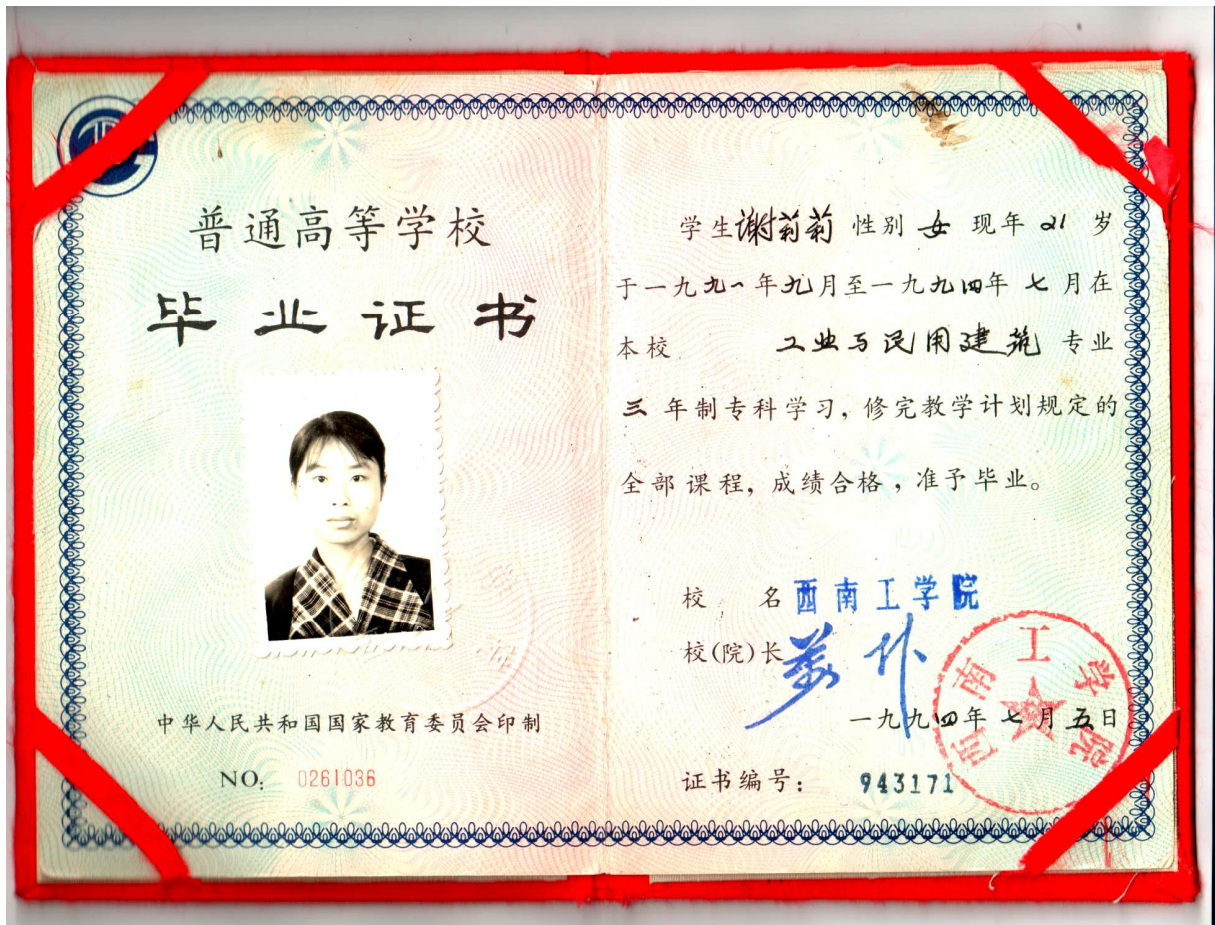 普通高等学校
毕业证书
中华人民共和国国家教育委员会印制
NO: 0261036
学生谢莉莉 性别 女 现年 21 岁
于一九九一年九月至一九九四年 七 月在
本校 工业与民用建筑 专业
三 年制专科学习，修完教学计划规定的
全部课程，成绩合格，准予毕业。
校 名 西南工学院
校(院)长
一九九四年 七 月 五日
西南工学院
证书编号： 943171